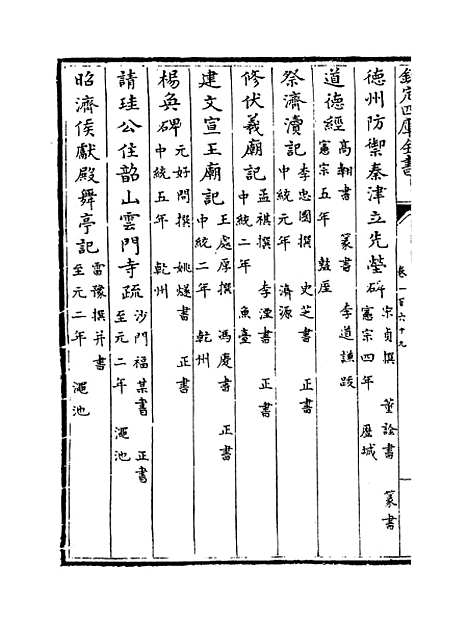 欽定四庫全書
卷一百六十九
德州防禦秦津立先塋碑 宋貞撰 董詮書 篆書 憲宗四年 歷城
道德經 高翿書 篆書 李道謙跋 憲宗五年 盩厔
祭濟瀆記 李忠國撰 史芝書 正書 中統元年 濟源
修伏羲廟記 孟祺撰 李湮書 正書 中統二年 魚臺
建文宣王廟記 王處厚撰 馮慶書 正書 中統二年 乾州
楊奐碑 元好問撰 姚燧書 正書 中統五年 乾州
請珪公住韶山雲門寺疏 沙門福某書 正書 至元二年 澠池
昭濟侯獻殿舞亭記 雷豫撰并書 至元二年 澠池